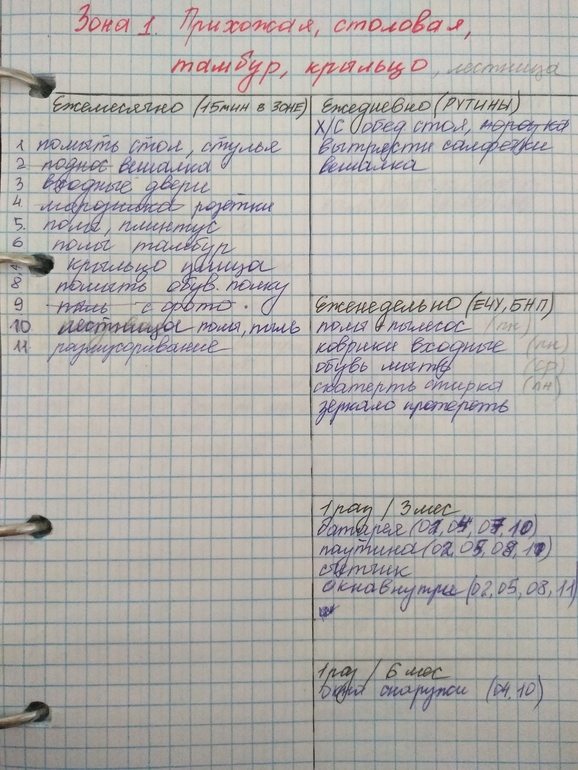 Зона 1. Прихожая, столовая,
тамбур, крыльцо, лестница
Ежемесячно (15 мин в ЗОНЕ)
1 помыть стол, стулья
2 поднос вешалка
3 входные двери
4 розетки
5. полы, плинтус
6 полы тамбур
крыльцо улица
8 помыть обув. полку
9 пыль с фото.
10 лестница полы, пыль
11 размусоривание
Ежедневно (РУТИНЫ)
Х/С обед стол,
вытрясти салфетки
вешалка
Еженедельно (ЕЧУ, БНП)
полы пылесос (пн)
коврики входные (пн)
обувь мыть (ср)
скатерть стирка (пн)
зеркало протереть
1 раз / 3 мес
батарея (02, 04, 07, 10)
паутина (02, 05, 08, 11)
счетчик
окна внутри (02, 05, 08, 11)
1 раз / 6 мес
окна снаружи (04, 10)